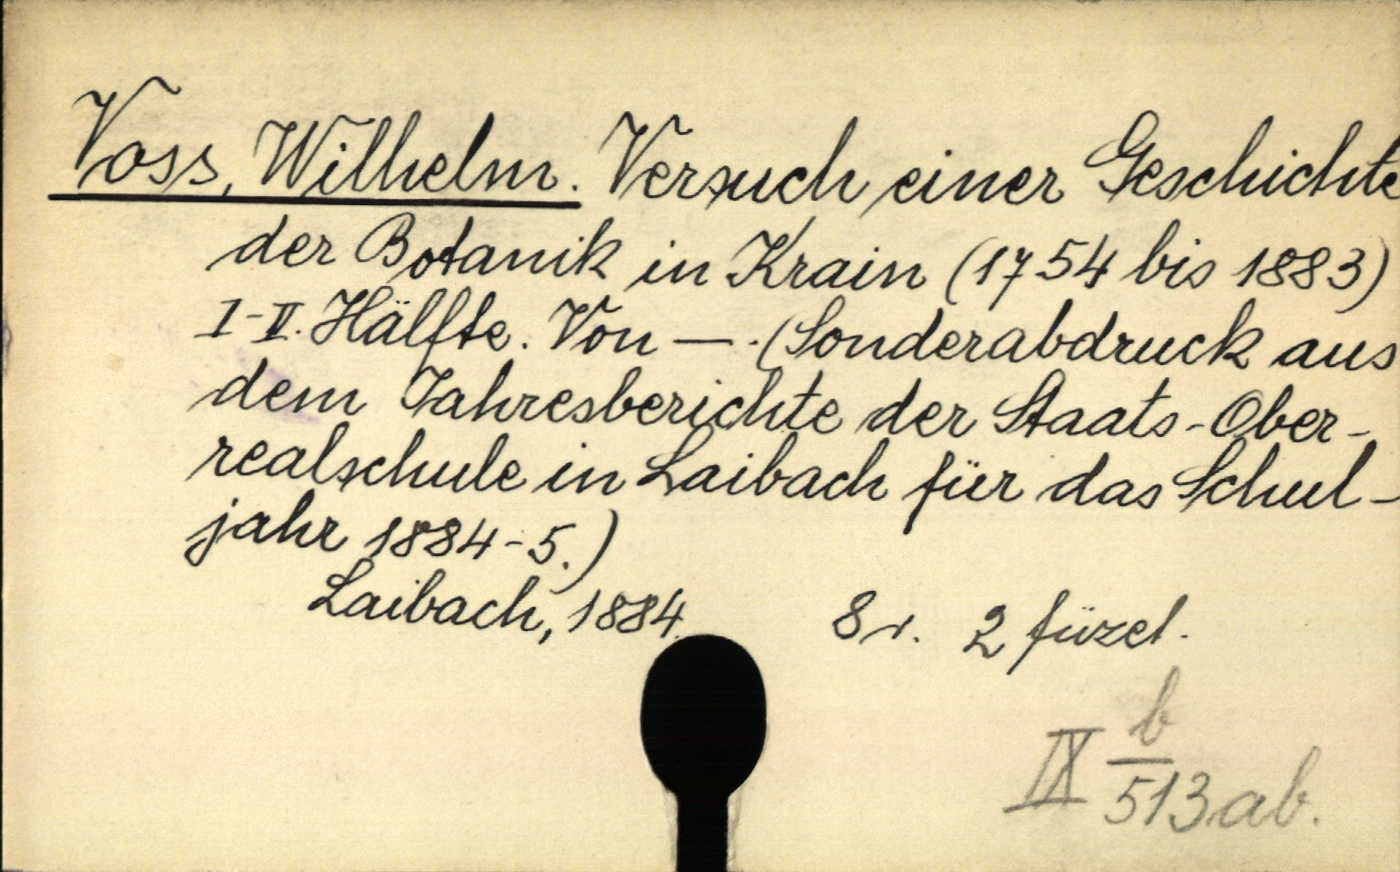 Voss, Wilhelm. Versuch einer Geschichte
der Botanik in Krain (1754 bis 1883)
I-II. Hälfte. Von —. (Sonderabdruck aus
dem Jahresberichte der Staats-Ober-
realschule in Laibach für das Schul-
jahr 1884-5.)
Laibach, 1884. 8r. 2 füzet.
IX b/513 ab.